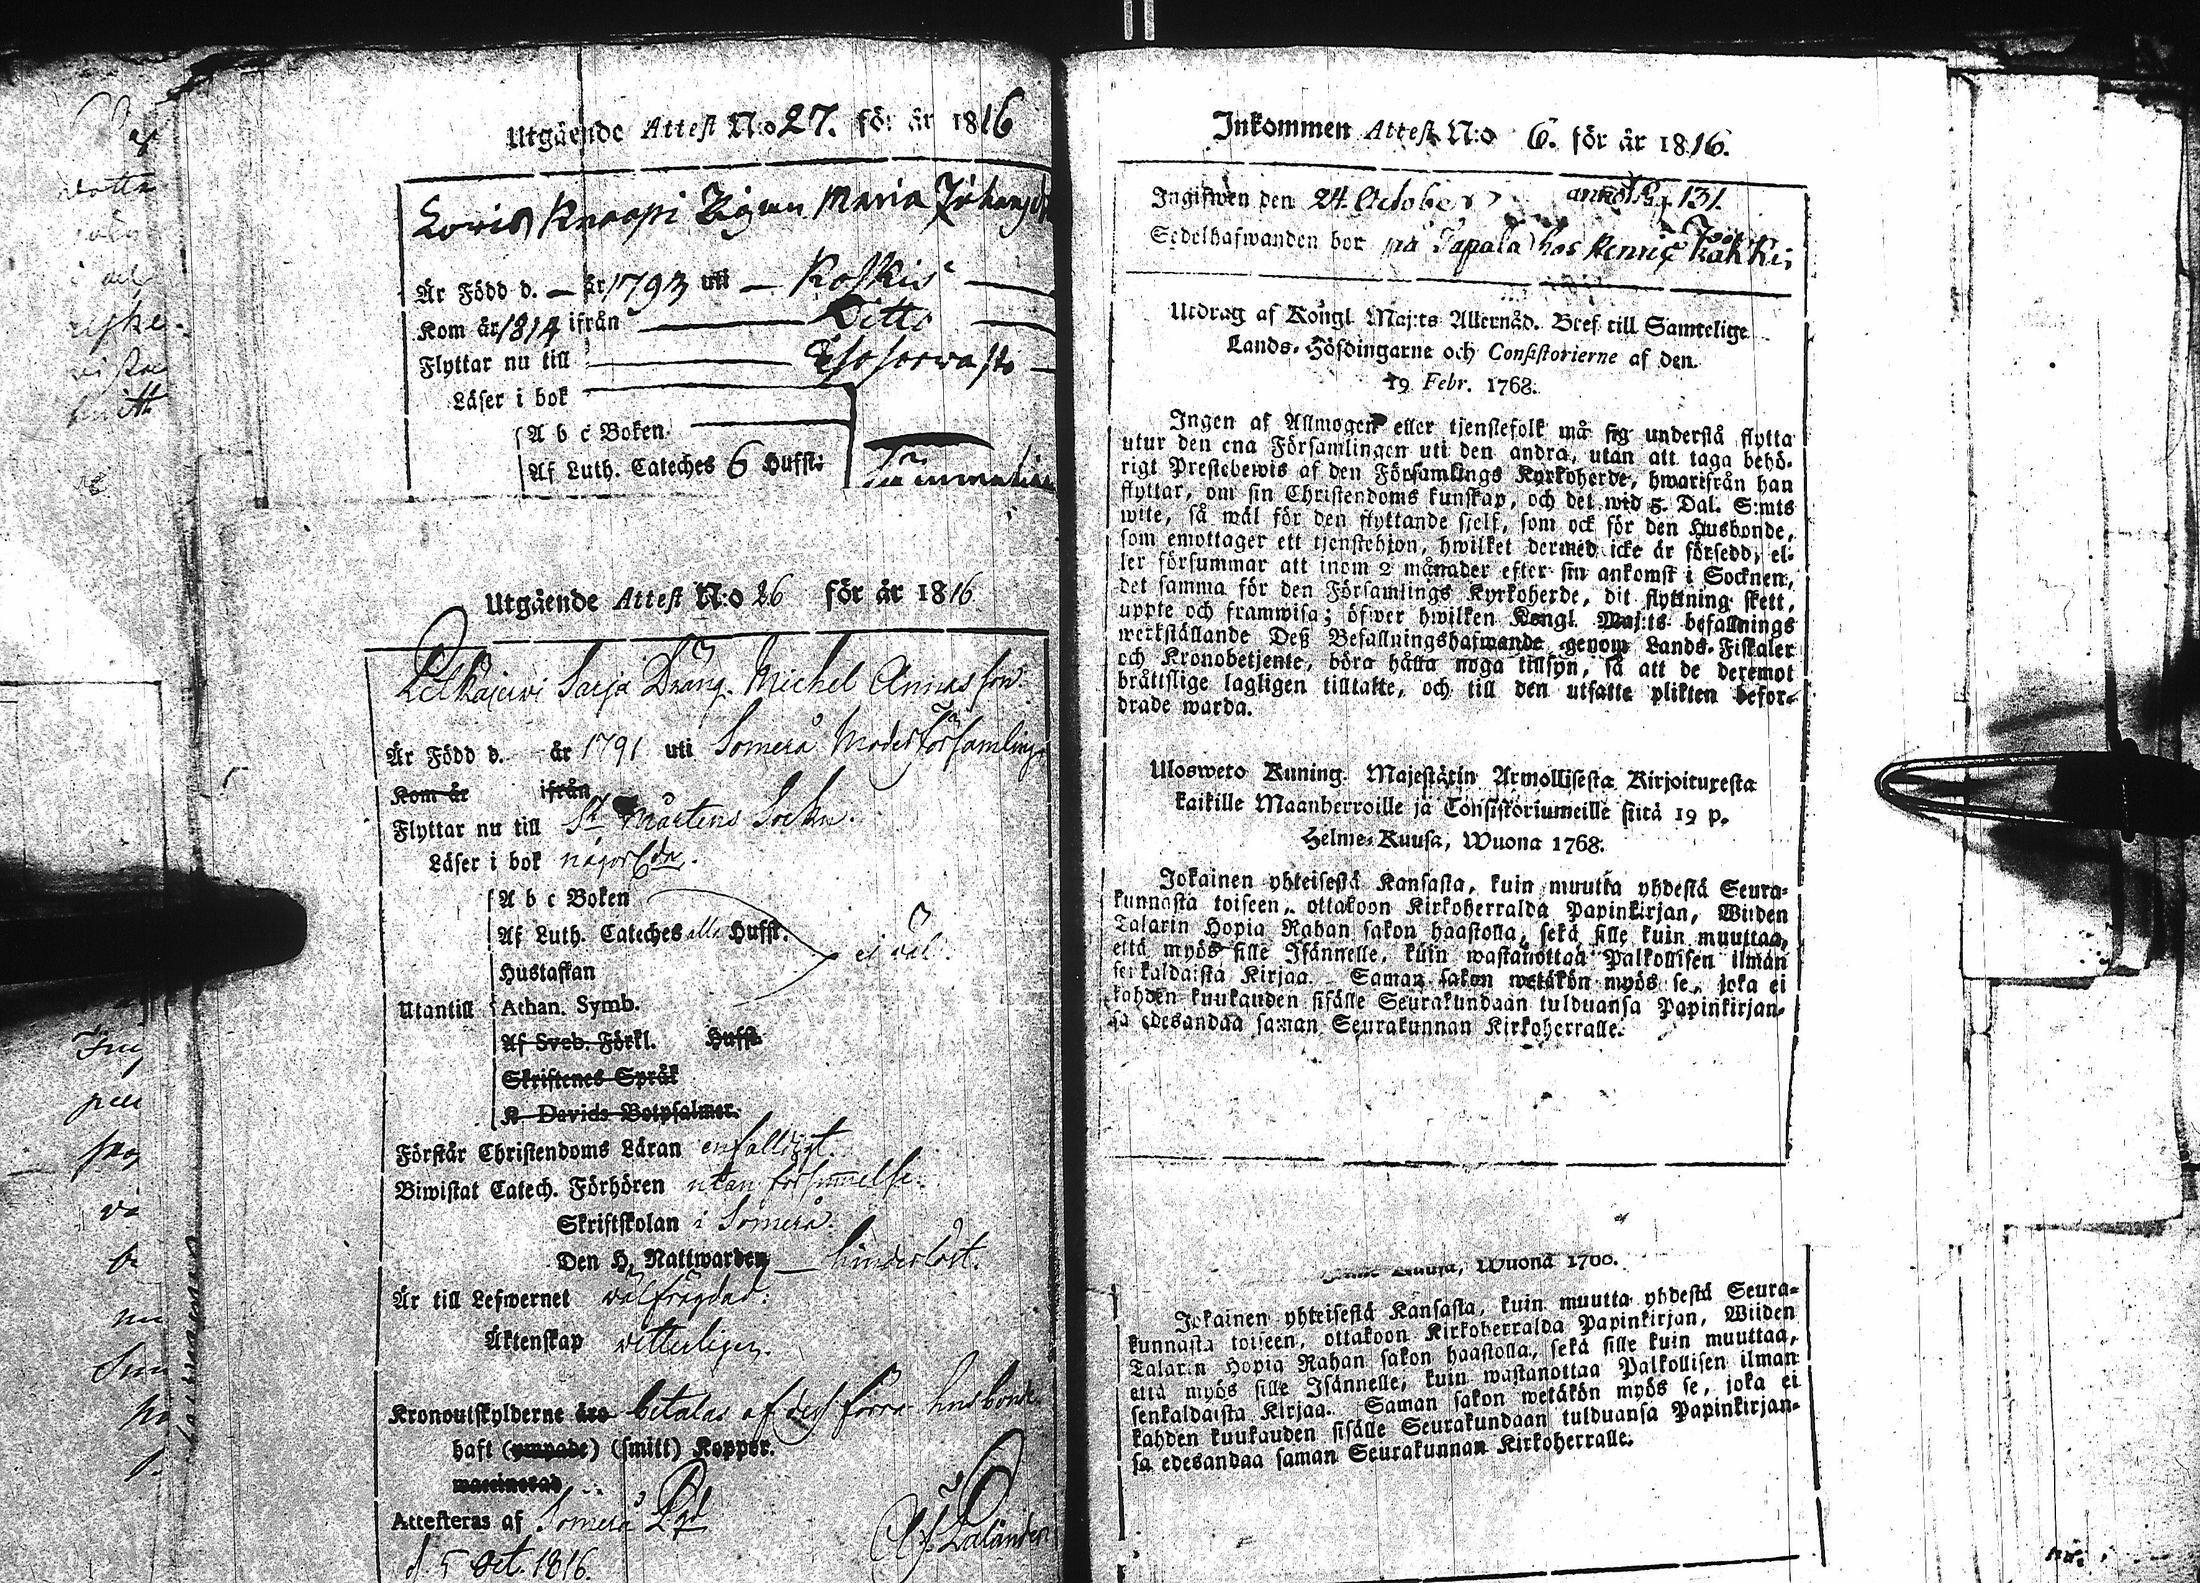 Utgående Attest N:o 27. för år 1816
Loris Knaapi Pigan Maria Johansd
Är Född d. — år 1793 uti — Koskis
Kom år 1814 ifrån Ditto
Flyttar nu till
Läser i bok
A b c Boken
Af Luth. Cateches 6 Hufst:
Utgående Attest N:o 26 för år 1816
Pelkäjerwi Sarja Dräng Michel Annasson
Är Född d. år 1791 uti Somero Moderförsamling
Kom år ifrån
Flyttar nu till St Mårtens Sockn.
Läser i bok någorlda.
A b c Boken
Af Luth. Cateches alla Hufst. ej väl.
Hustaflan
Utantill Athan. Symb.
Af Sveb. Förkl. Hufst.
Skriftenes Språk
K Davids Botpsalmer.
Förstår Christendoms Läran enfalldigt.
Biwistat Catech. Förhören utan försummelse.
Skriftskolan i Somero.
Den H. Nattwarden — hinderlöst.
Är till Lefwernet välfrägdad:
Äktenskap vitterligen.
Kronoutskylderne äro betalas af dess förra husbonde
haft (ympade) (smitt) Koppor.
waccinerad
Attesteras af Somero Pgd
d. 5 Oct. 1816.
Inkommen Attest N:o 6. för år 1816.
Ingifwen den 24 October anno Pag 131.
Sedelhafwanden bor på Tapala hos Henric Kakki
Utdrag af Kongl Maj:ts Allernåd. Bref till Samtelige
Lands-Höfdingarne och Consistorierne af den
19 Febr. 1768.
Ingen af Allmogen eller tjenstefolk må sig understå flytta
utur den ena Församlingen uti den andra, utan att taga behö-
rigt Prestebewis af den Församlings Kyrkoherde, hwarifrån han
flyttar, om sin Christendoms kunskap, och det wid 5. Dal. S:mts
wite, så wäl för den flyttande sjelf, som ock för den Husbonde,
som emottager ett tjenstehjon, hwilket dermed icke är försedd, el-
ler försummar att inom 2 månader efter sin ankomst i Socknen,
det samma för den Församlings Kyrkoherde, dit flyttning skett,
uppte och framwisa; öfwer hwilken Kongl. Maj:ts befallnings
werkställande Deß Befallningshafwande genom Lands-Fiskaler
och Kronobetjente, böra hålla noga tillsyn, så att de deremot
bråttslige lagligen tilltalte, och till den utsatte plikten befor-
drade warda.
Ulosweto Kuning. Majestätin Armollisesta Kirjoituxesta
kaikille Maanherroille ja Consistoriumeille siitä 19 p.
Helme-Kuusa, Wuona 1768.
Jokainen yhteisestä Kansasta, kuin muutta yhdestä Seura-
kunnasta toiseen, ottakoon Kirkoherralda Papinkirjan, Wiiden
Talarin Hopia Rahan sakon haastolla, sekä sille kuin muuttaa,
että myös sille Isännelle, kuin wastanottaa Palkollisen ilman
senkaldaista Kirjaa. Saman sakon wetäkön myös se, joka ei
kahden kuukauden sisälle Seurakundaan tulduansa Papinkirjan-
sa edesandaa saman Seurakunnan Kirkoherralle.
Kuusa, Wuona 1768.
Jokainen yhteisestä Kansasta, kuin muutta yhdestä Seura-
kunnasta toiseen, ottakoon Kirkoherralda Papinkirjan, Wiiden
Talarin Hopia Rahan sakon haastolla, sekä sille kuin muuttaa,
että myös sille Isännelle, kuin wastanottaa Palkollisen ilman
senkaldaista Kirjaa. Saman sakon wetäkön myös se, joka ei
kahden kuukauden sisälle Seurakundaan tulduansa Papinkirjan-
sa edesandaa saman Seurakunnan Kirkoherralle.